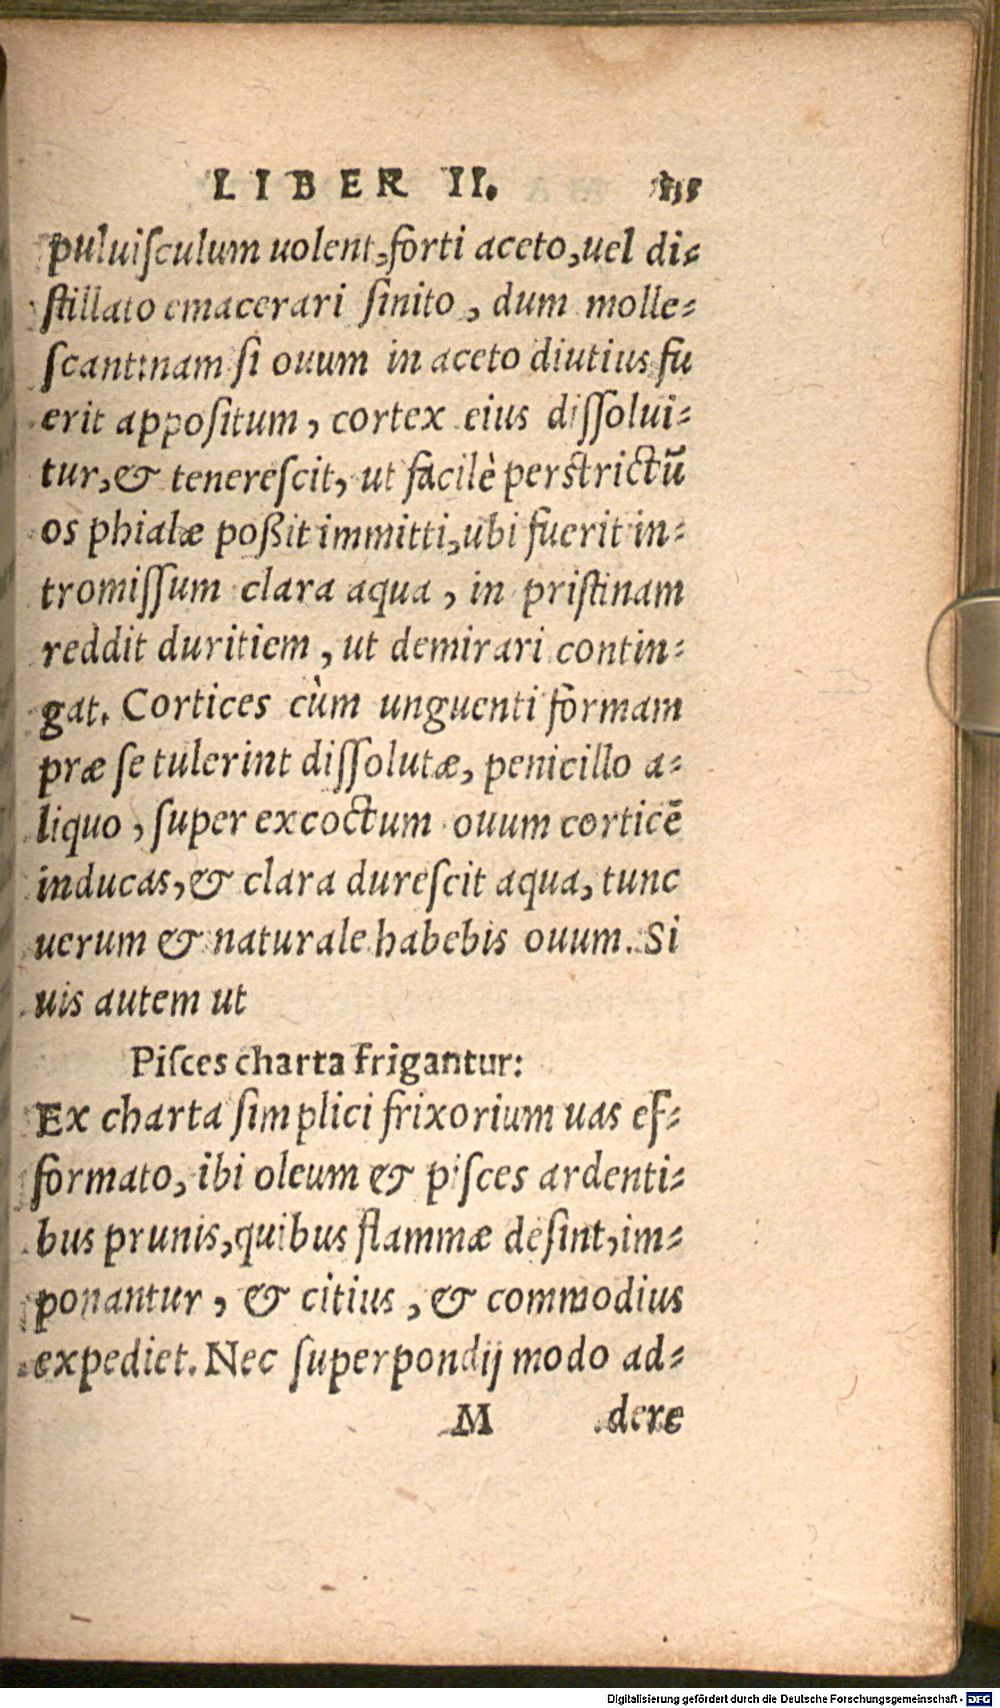 LIBER II.
puluiſculum uolent, forti aceto, uel di-
ſtillato emacerari ſinito, dum molle-
ſcant: nam ſi ouum in aceto diutius fu
erit appoſitum, cortex eius diſſolui-
tur, & tenereſcit, ut facilè perſtrictū
os phialæ poßit immitti, ubi fuerit in-
tromiſſum clara aqua, in priſtinam
reddit duritiem, ut demirari contin-
gat. Cortices cùm unguenti formam
præ ſe tulerint diſſolutæ, penicillo a-
liquo, ſuper excoctum ouum corticē
inducas, & clara dureſcit aqua, tunc
uerum & naturale habebis ouum. Si
uis autem ut
Piſces charta frigantur:
Ex charta ſimplici frixorium uas ef-
formato, ibi oleum & piſces ardenti-
bus prunis, quibus flammæ deſint, im-
ponantur, & citius, & commodius
expediet. Nec ſuperpondij modo ad-
M dere
Digitalisierung gefördert durch die Deutsche Forschungsgemeinschaft - DFG